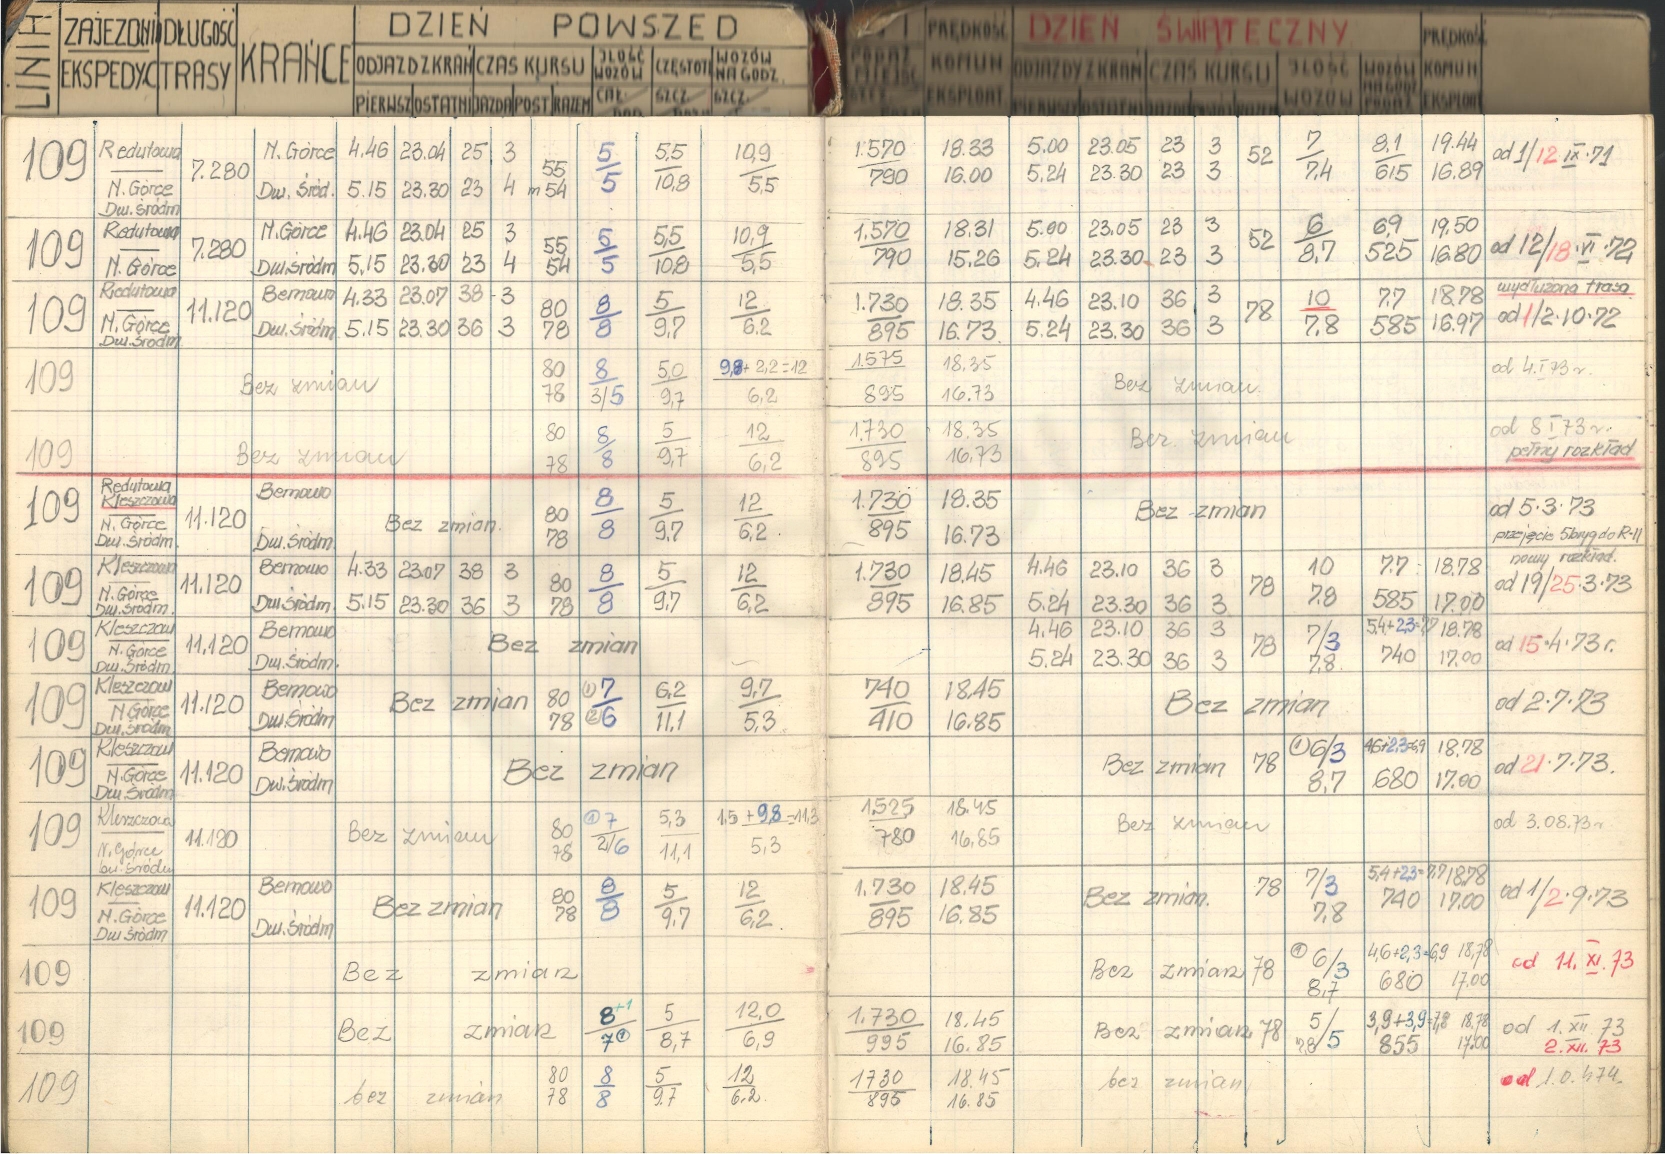 LINIA ZAJEZDNI DŁUGOŚĆ KRAŃCE DZIEŃ POWSZED PRĘDKOŚĆ DZIEŃ ŚWIĄTECZNY PRĘDKOŚĆ
EKSPEDYC TRASY ODJAZD Z KRAŃ CZAS KURSU ILOŚĆ WOZÓW CZĘSTOTL WOZÓW NA GODZ. KOMUN ODJAZDY Z KRAŃ CZAS KURSU ILOŚĆ WOZÓW WOZÓW NA GODZ KOMUN
PIERWSZ OSTATNI JAZDA POST RAZEM SZCZ. SZCZ. EKSPLOAT PIERWSZ OSTATNI EKSPLOAT
109 Redutowa 7.280 N. Górce 4.46 23.04 25 3 55 5 5,5 10,9 1.570 18.33 5.00 23.05 23 3 52 7 8,1 19.44 od 1/12.IX.71
N. Górce Dw. Śród. 5.15 23.30 23 4 m 54 5 10,8 5,5 790 16.00 5.24 23.30 23 3 7,4 615 16.89
Dw. śródm
109 Redutowa 7.280 N. Górce 4.46 23.04 25 3 55 5 5,5 10,9 1.570 18.31 5.00 23.05 23 3 52 6 6,9 19,50 od 12/18.VI.72
N. Górce Dw. śródm 5.15 23.30 23 4 54 5 10,8 5,5 790 15.26 5.24 23.30 23 3 8,7 525 16.80
109 Redutowa 11.120 Bemowo 4.33 23.07 38 3 80 8 5 12 1.730 18.35 4.46 23.10 36 3 78 10 7,7 18,78 wydłużona trasa
N. Górce Dw. śródm 5.15 23.30 36 3 78 8 9,7 6.2 895 16.73 5.24 23.30 36 3 7,8 585 16.97 od 1/2.10.72
Dw. śródm
109 Bez zmian 80 8 5,0 9,8+2,2=12 1.575 18.35 Bez zmian. od 4.I 73 r.
78 3/5 9,7 6,2 895 16.73
109 Bez zmian 80 8 5 12 1.730 18.35 Bez zmian od 8 I 73 r.
78 8 9,7 6,2 895 16,73 pełny rozkład
109 Redutowa 11.120 Bemowo Bez zmian. 80 8 5 12 1.730 18.35 Bez zmian od 5.3.73
Kleszczowa
N. Górce Dw. śródm. 78 8 9,7 6,2 895 16.73 przejęcie 5 bryg do R-11
Dw. śródm.
109 Kleszczow 11.120 Bemowo 4.33 23.07 38 3 80 8 5 12 1.730 18.45 4.46 23.10 36 3 78 10 7,7 18.78 nowy rozkład.
N. Górce Dw. śródm 5.15 23.30 36 3 78 8 9,7 6,2 895 16.85 5.24 23.30 36 3 7,8 585 17.00 od 19/25.3.73
Dw. śródm.
109 Kleszczow 11.120 Bemowo Bez zmian 4.46 23.10 36 3 78 7/3 5,4+2,3=7,7 18.78 od 15.4.73 r.
N. Górce Dw. śródm. 5.24 23.30 36 3 7,8. 740 17.00
Dw. śródm
109 Kleszczow 11.120 Bemowo Bez zmian 80 (1) 7 6,2 9,7 740 18.45 Bez zmian od 2.7.73
N Górce Dw. śródm 78 (2) 6 11,1 5,3 410 16.85
Dw. śródm
109 Kleszczow 11.120 Bemowo Bez zmian Bez zmian 78 (1) 6/3 4,6+2,3=6,9 18,78 od 21.7.73.
N. Górce Dw. śródm 8,7 680 17.00
Dw. śródm
109 Kleszczowa 11.120 Bez zmian 80 (1) 7 5,3 1,5+9,8=11,3 1.525 18.45 Bez zmian od 3.08.73 r
N. Górce 78 2/6 11,1 5,3 780 16,85
Dw. śródm
109 Kleszczow 11.120 Bemowo Bez zmian 80 8 5 12 1.730 18.45 Bez zmian. 78 7/3 5,4+2,3=7,7 18.78 od 1/2.9.73
N. Górce Dw. śródm 78 8 9,7 6,2 895 16.85 7,8 740 17.00
Dw śródm
109 Bez zmian Bez zmian 78 (1) 6/3 4,6+2,3=6,9 18,78 od 11.XI.73
8,7 680 17.00
109 Bez zmian 8+1 5 12,0 1.730 18.45 Bez zmian 78 5/5 3,9+3,9=7,8 18.78 od 1.XII 73
7(1) 8,7 6,9 995 16.85 7,8 855 17.00 2.XII.73
109 bez zmian 80 8 5 12 1730 18.45 bez zmian od 1.0.474.
78 8 9.7 6.2. 895 16.85